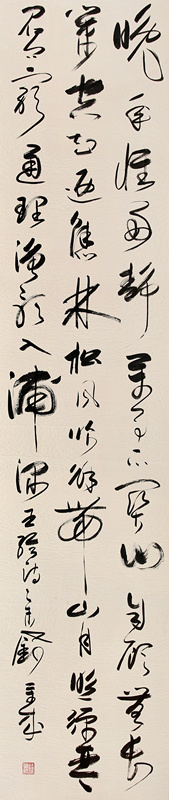 晚年惟好静萬事不関心自顧無長
策空知返舊林松風吹解帶山月照彈琴
君問窮通理漁歌入浦深王維诗